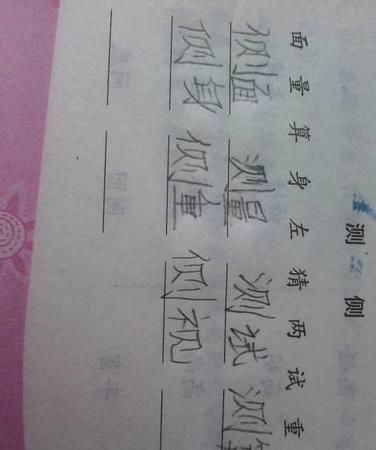 测 侧
面 量 算 身 左 猜 两 试 重
侧面 测量 测试 测算
侧身 侧重 侧视